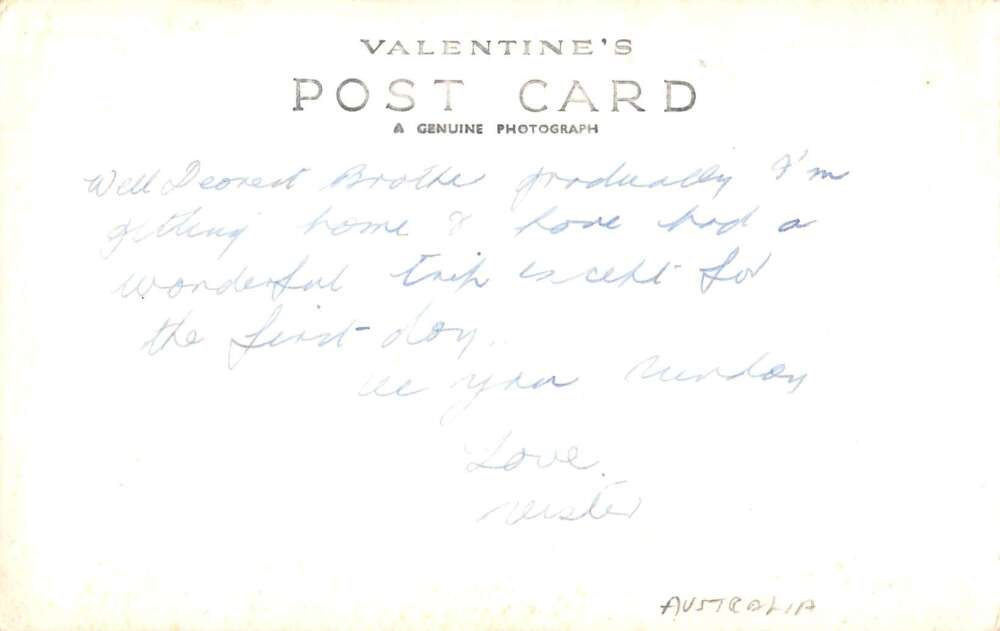 VALENTINE'S
POST CARD
A GENUINE PHOTOGRAPH
Well Dearest Brother gradually I'm
getting home & have had a
wonderful trip except for
the first day.
see you Sunday
Love.
sister
AUSTRALIA